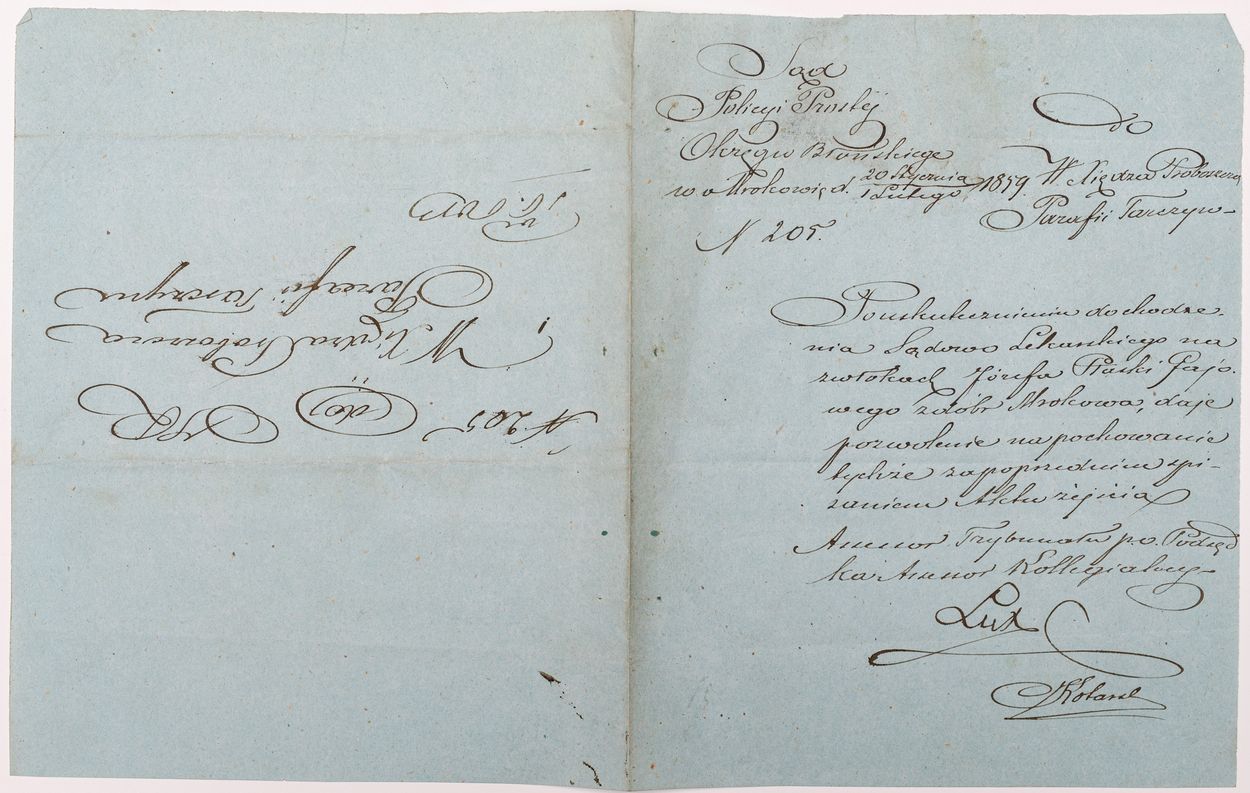 Sąd
Policyi Prostéj
Okręgu Błońskiego
w Mrokowie d. 20 Stycznia / 1 Lutego 1859.
N 205.
Do
W. Xiędza Proboszcza
Parafii Tarczyn
Po uskutecznieniu dochodze-
nia Sądowo Lekarskiego na
zwłokach Józefa Ptaski Gajo-
wego z dóbr Mrokowa, daje
pozwolenie na pochowanie
tychże za poprzednim spi-
saniem Aktu zejścia
Assessor Trybunału p.o. Podsęd
ka Assessor Kollegialny
Lux
N 205 do
W Xiędza Proboszcza
Parafii Tarczyn